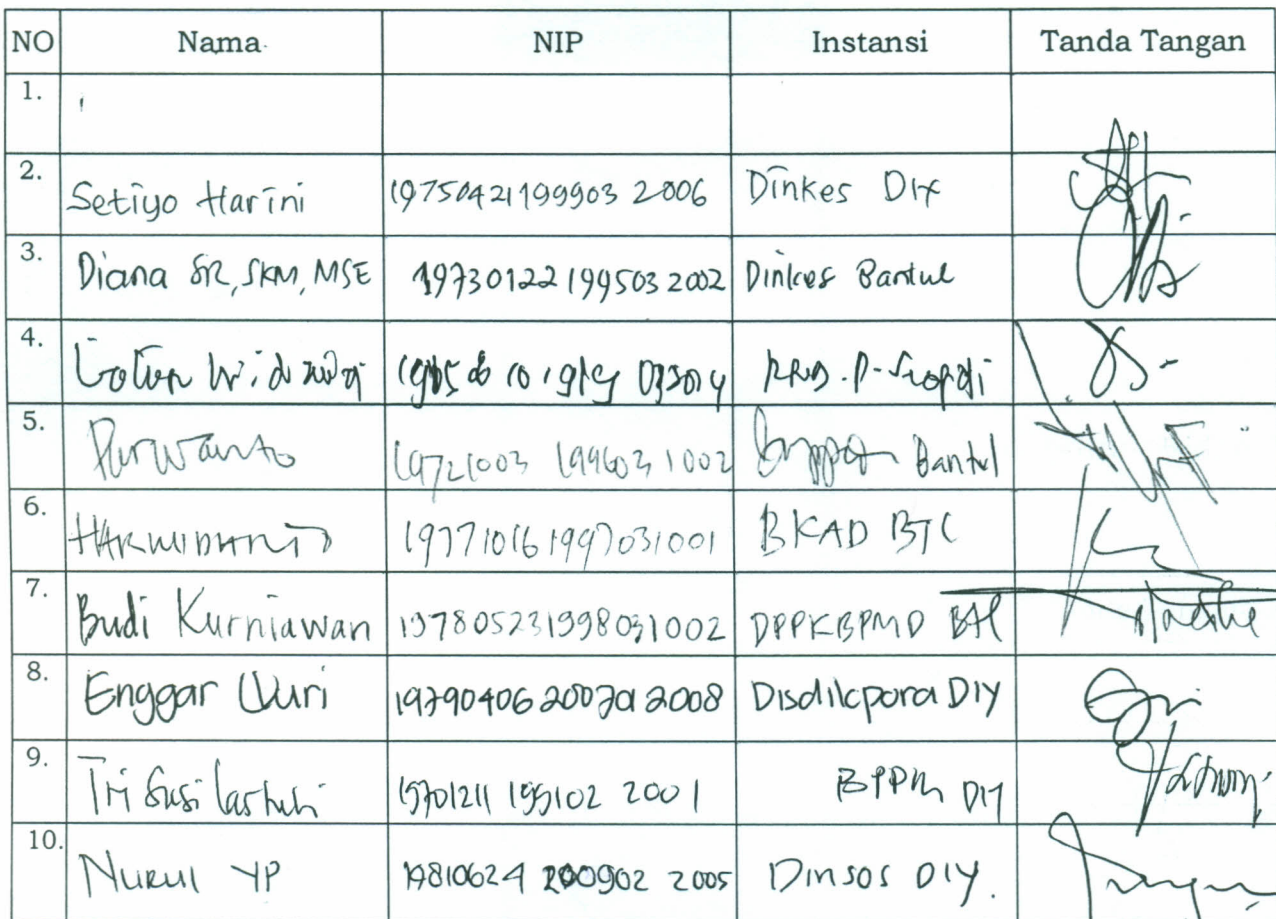 NO Nama NIP Instansi Tanda Tangan
1.
2. Setiyo Harini 19750421199903 2006 Dinkes DIY
3. Diana SR, SKM, MSE 19730122 199503 2002 Dinkes Bantul
4.
5. Purwanto 19721003 199603 1002 Bantul
6. 197710161997031001 BKAD BTL
7. Budi Kurniawan 197805231998031002 DPPKBPMD BTL
8. Enggar Wuri 19790406 200701 2008 Disdikpora DIY
9. Tri Susi Lastuti 19701211 199102 2001 BPPM DIY
10. Nurul YP 19810624 200902 2005 Dinsos DIY.